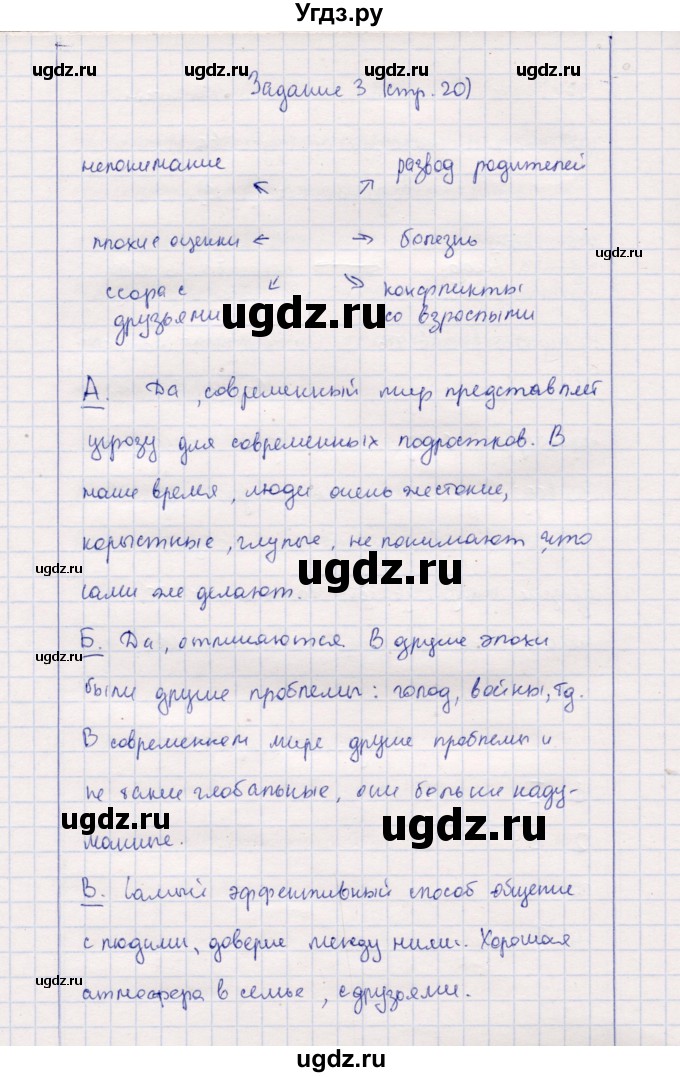 Угдз.ру
ugdz.ru ugdz.ru ugdz.ru
Задание 3 (стр. 20)
непонимание развод родителей
плохие оценки болезнь
ugdz.ru
ссора с конфликты
друзьями со взрослыми
ugdz.ru
А. Да, современный мир представляет
угрозу для современных подростков. В
наше время, люди очень жестокие,
корыстные, глупые, не понимают что
ugdz.ru ugdz.ru
сами же делают.
Б. Да, отличаются. В другие эпохи
ugdz.ru
были другие проблемы: голод, войны, тд.
В современном мире другие проблемы и
не такие глобальные, они больше наду-
ugdz.ru ugdz.ru
манные.
В. Самый эффективный способ общение
с людьми, доверие между ними. Хорошая
атмосфера в семье, с друзьями.
ugdz.ru
ugdz.ru